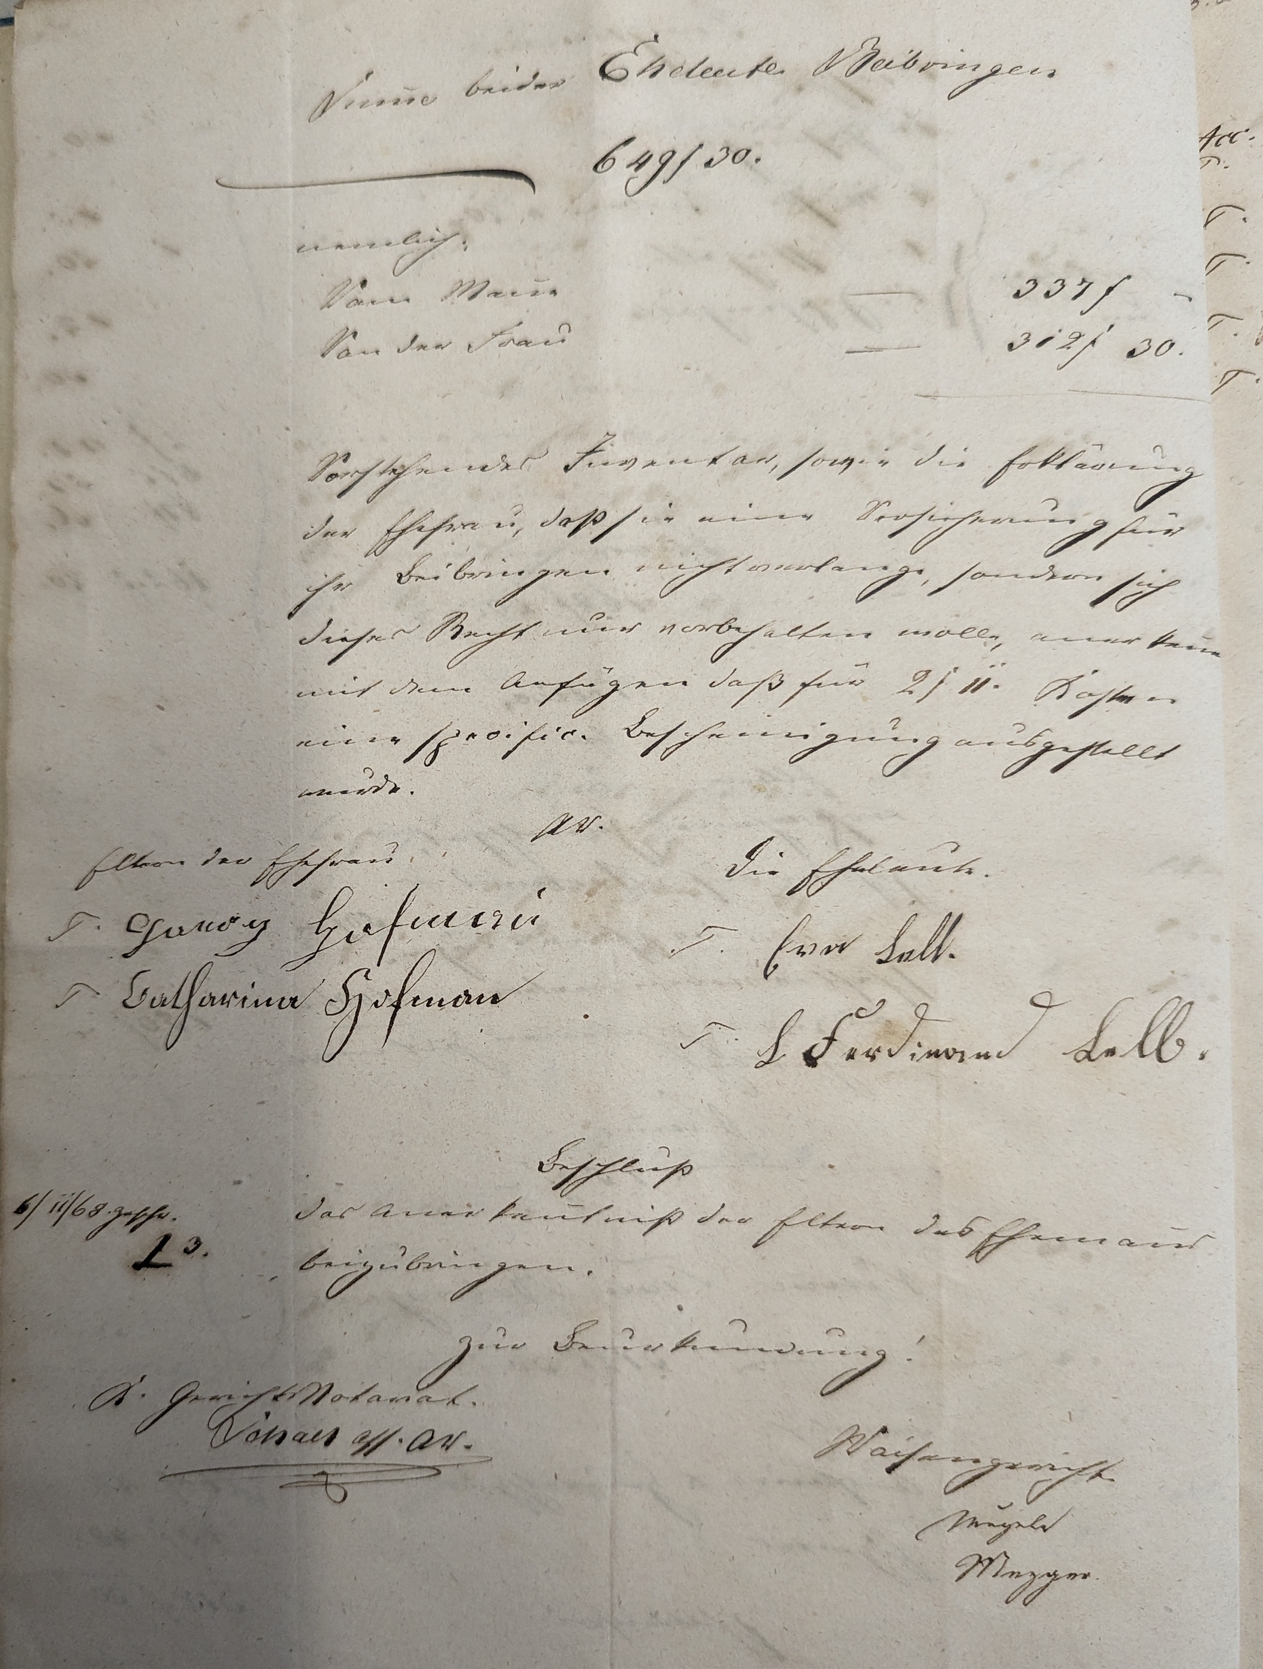 Summe beider Eheleute Beibringen
649 f 30.
nemlich:
Vom Mann — 337 f -
Von der Frau — 312 f 30.
Vorstehendes Inventar, sowie die Erklärung
der Ehefrau, daß sie eine Versicherung für
ihr Beibringen nicht verlange, sondern sich
dieses Recht nur vorbehalten wolle, anerkenn
mit dem Anfügen daß für 2 f 11. Kosten
eine specific. Bescheinigung ausgestellt
wurde.
Eltern der Ehefrau.
T. Georg Hofmann
T. Catharina Hofman
Die Eheleute.
T. Eva Kelb.
T. L Ferdinand Kelb.
Beschluß
6/11/68 gesch.
13.
das Anerkentniß der Eltern des Ehemanns
beizubringen.
Zur Beurkundung!
K. Gerichts Notariat.
Ass. AV.
Waisengericht
Mezger.
Acc.
T.
T.
T.
T.
T.